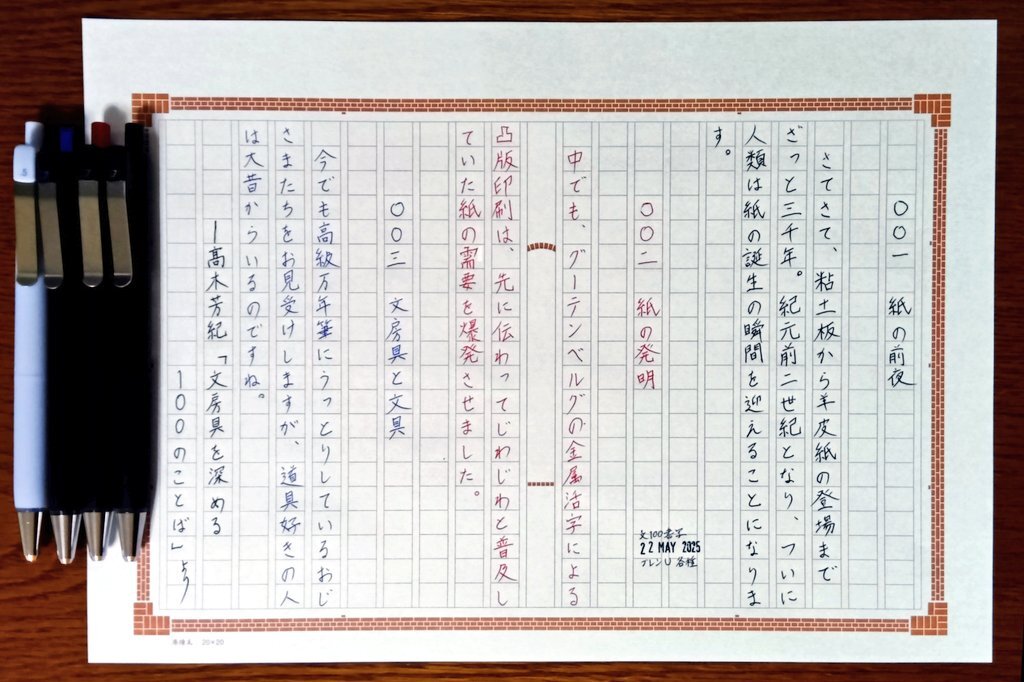 〇〇一 紙の前夜
さてさて、粘土板から羊皮紙の登場まで
ざっと三千年。紀元前二世紀となり、ついに
人類は紙の誕生の瞬間を迎えることになりま
す。
〇〇二 紙の発明
中でも、グーテンベルグの金属活字による
凸版印刷は、先に伝わってじわじわと普及し
ていた紙の需要を爆発させました。
〇〇三 文房具と文具
今でも高級万年筆にうっとりしているおじ
さまたちをお見受けしますが、道具好きの人
は大昔からいるのですね。
―高木芳紀「文房具を深める
100のことば」より
22 MAY 2025
ブレンU 各種
20×20
.5